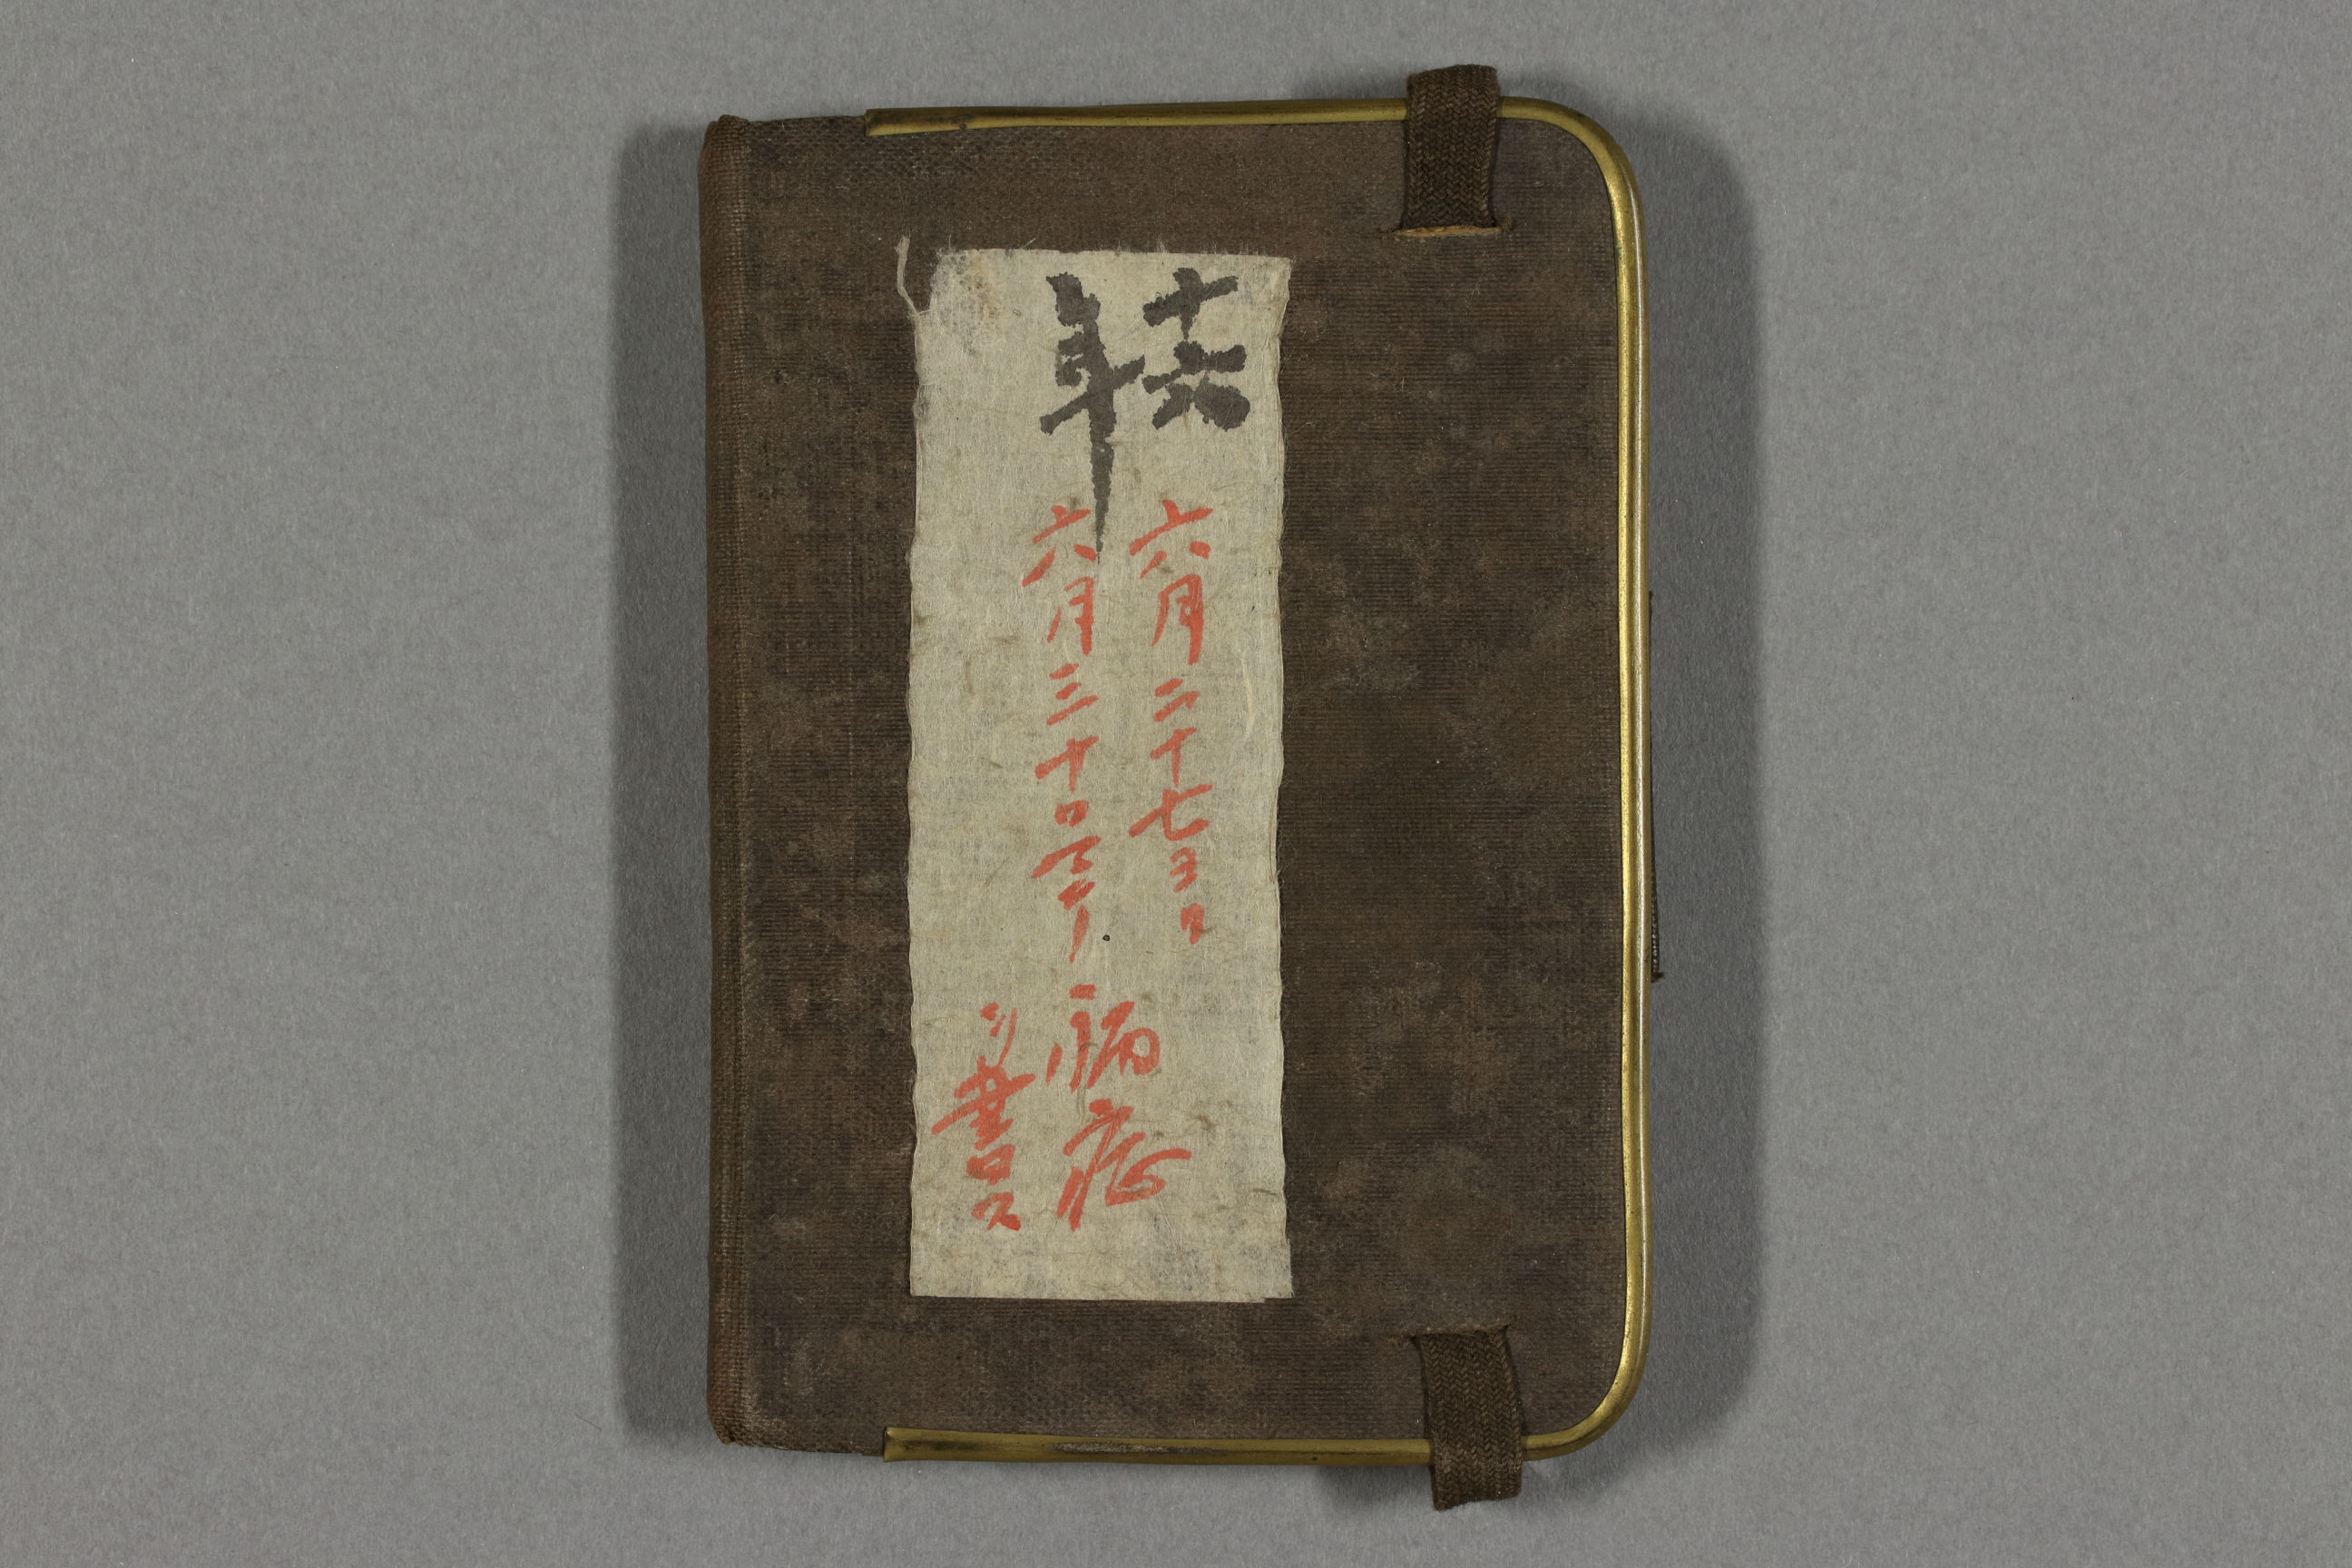 十六
年
六月二十七ヨリ
六月三十日マデノ
病症
ヲ書ス